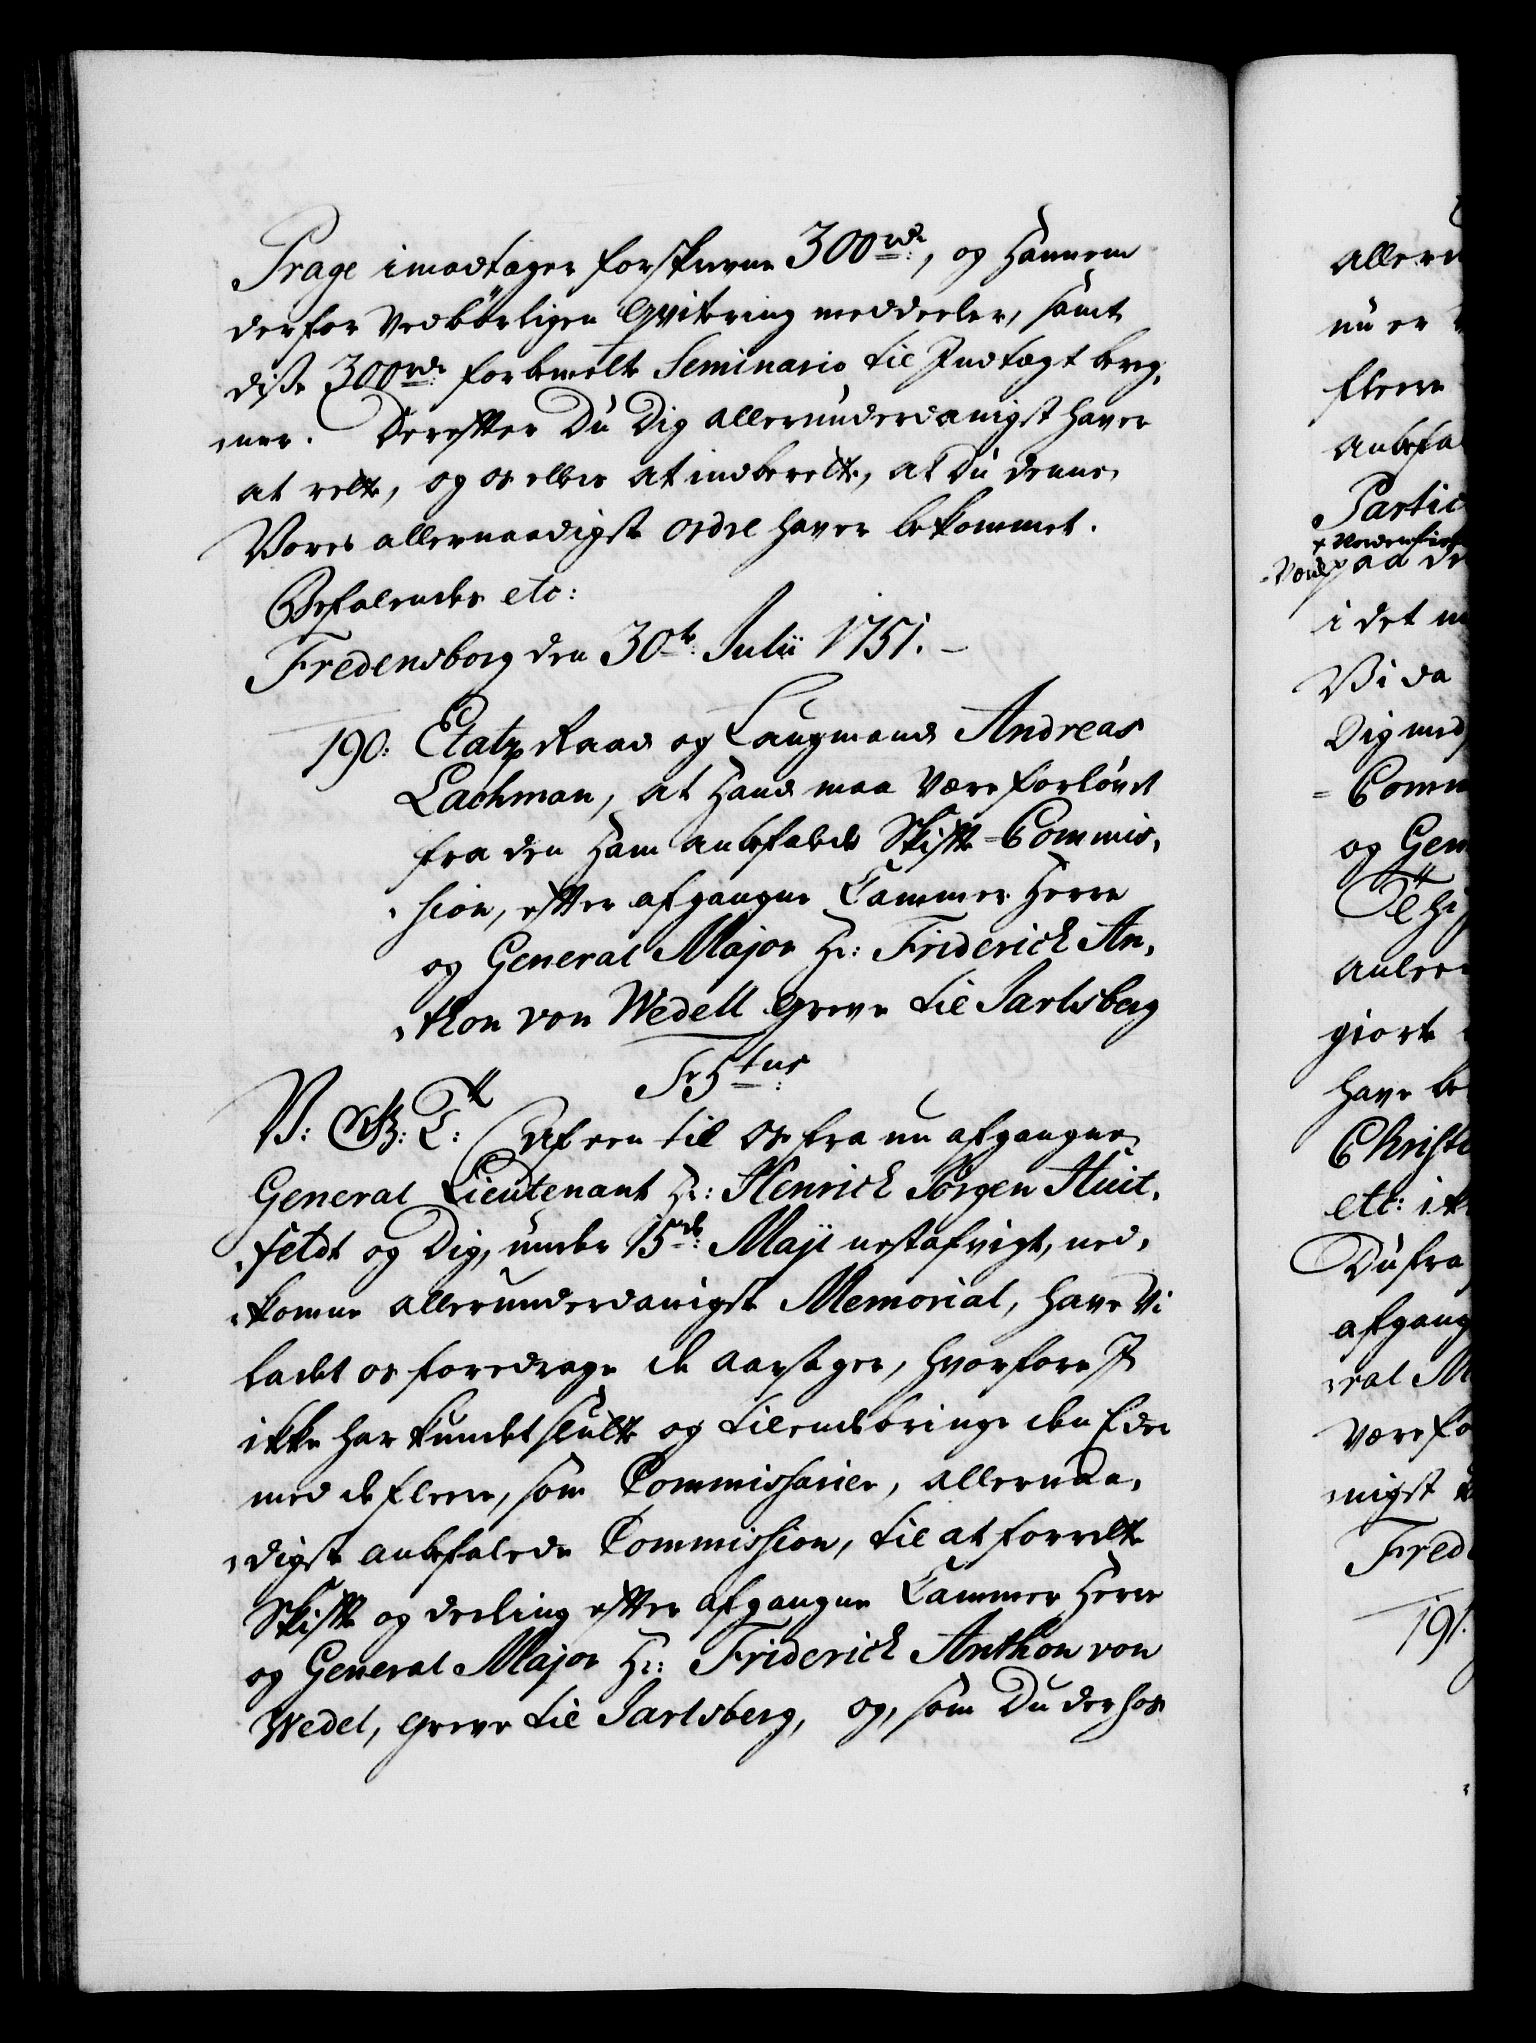 Prage imodtager forskrevne 300 rdr:, og Hannem
derfor Vedbørligen Qvitering meddeeler, samt
disse 300 rdr: forbemelte Seminario til Indtægt bereg,
,ner. Derefter Du Dig allerunderdanigst haver
at rette, og os ellers at indberette, at Du denne
Vores allernaadigste ordre haver bekommet.
Befalendes etc:
Fredensborg den 30te: Julii 1751. –
190: Etatz Raad og Laugmand Andreas
Lachman, at Hand maa være forløvet
fra den Ham anbefalede Skifte-Commis,
,sion, efter afgangne Cammer Herre
og General Major Hr: Friderich An,
,thon von Wedell Greve til Jarlsberg
Fr 5tus
V: G: T: Af een til os fra nu afgangne
General Lieutenant Hr: Henrich Jørgen Huit,
,feldt og Dig, under 15de: Maji nestafvigt, ned,
,komne allerunderdanigste Memorial, have Vi
ladet os foredrage de aarsager, hvorfore I
ikke har kundet slutte og tilendebringe den Eder
med de fleere, som Commissarier, allernaa,
,digst anbefalede Commission, til at forrette
Skifte og deeling efter afgangne Cammer Herre
og General Major Hr: Friderich Anthon von
Wedel, Greve til Jarlsberg, og, som Du derhos
aller
nu er
fleere
anbefa
Partic
paa de
i det
Vi da
Dig med
Comm
og Gen
giort
have be
Christi
etc: ik
Du fra
afgang
,ral M
være fo
,nigst
Fred
191.